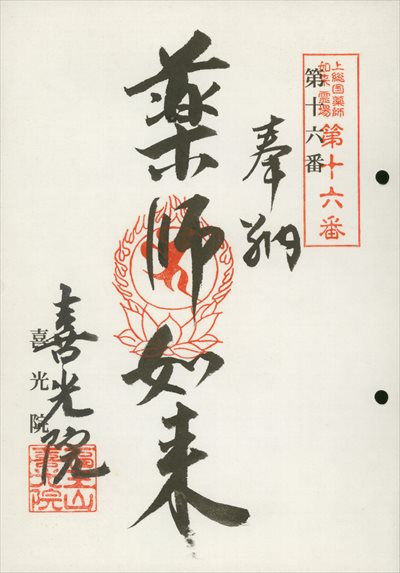 上総国薬師
如来霊場
第十六番
第十六番
奉納
薬師如来
喜光院
喜光院